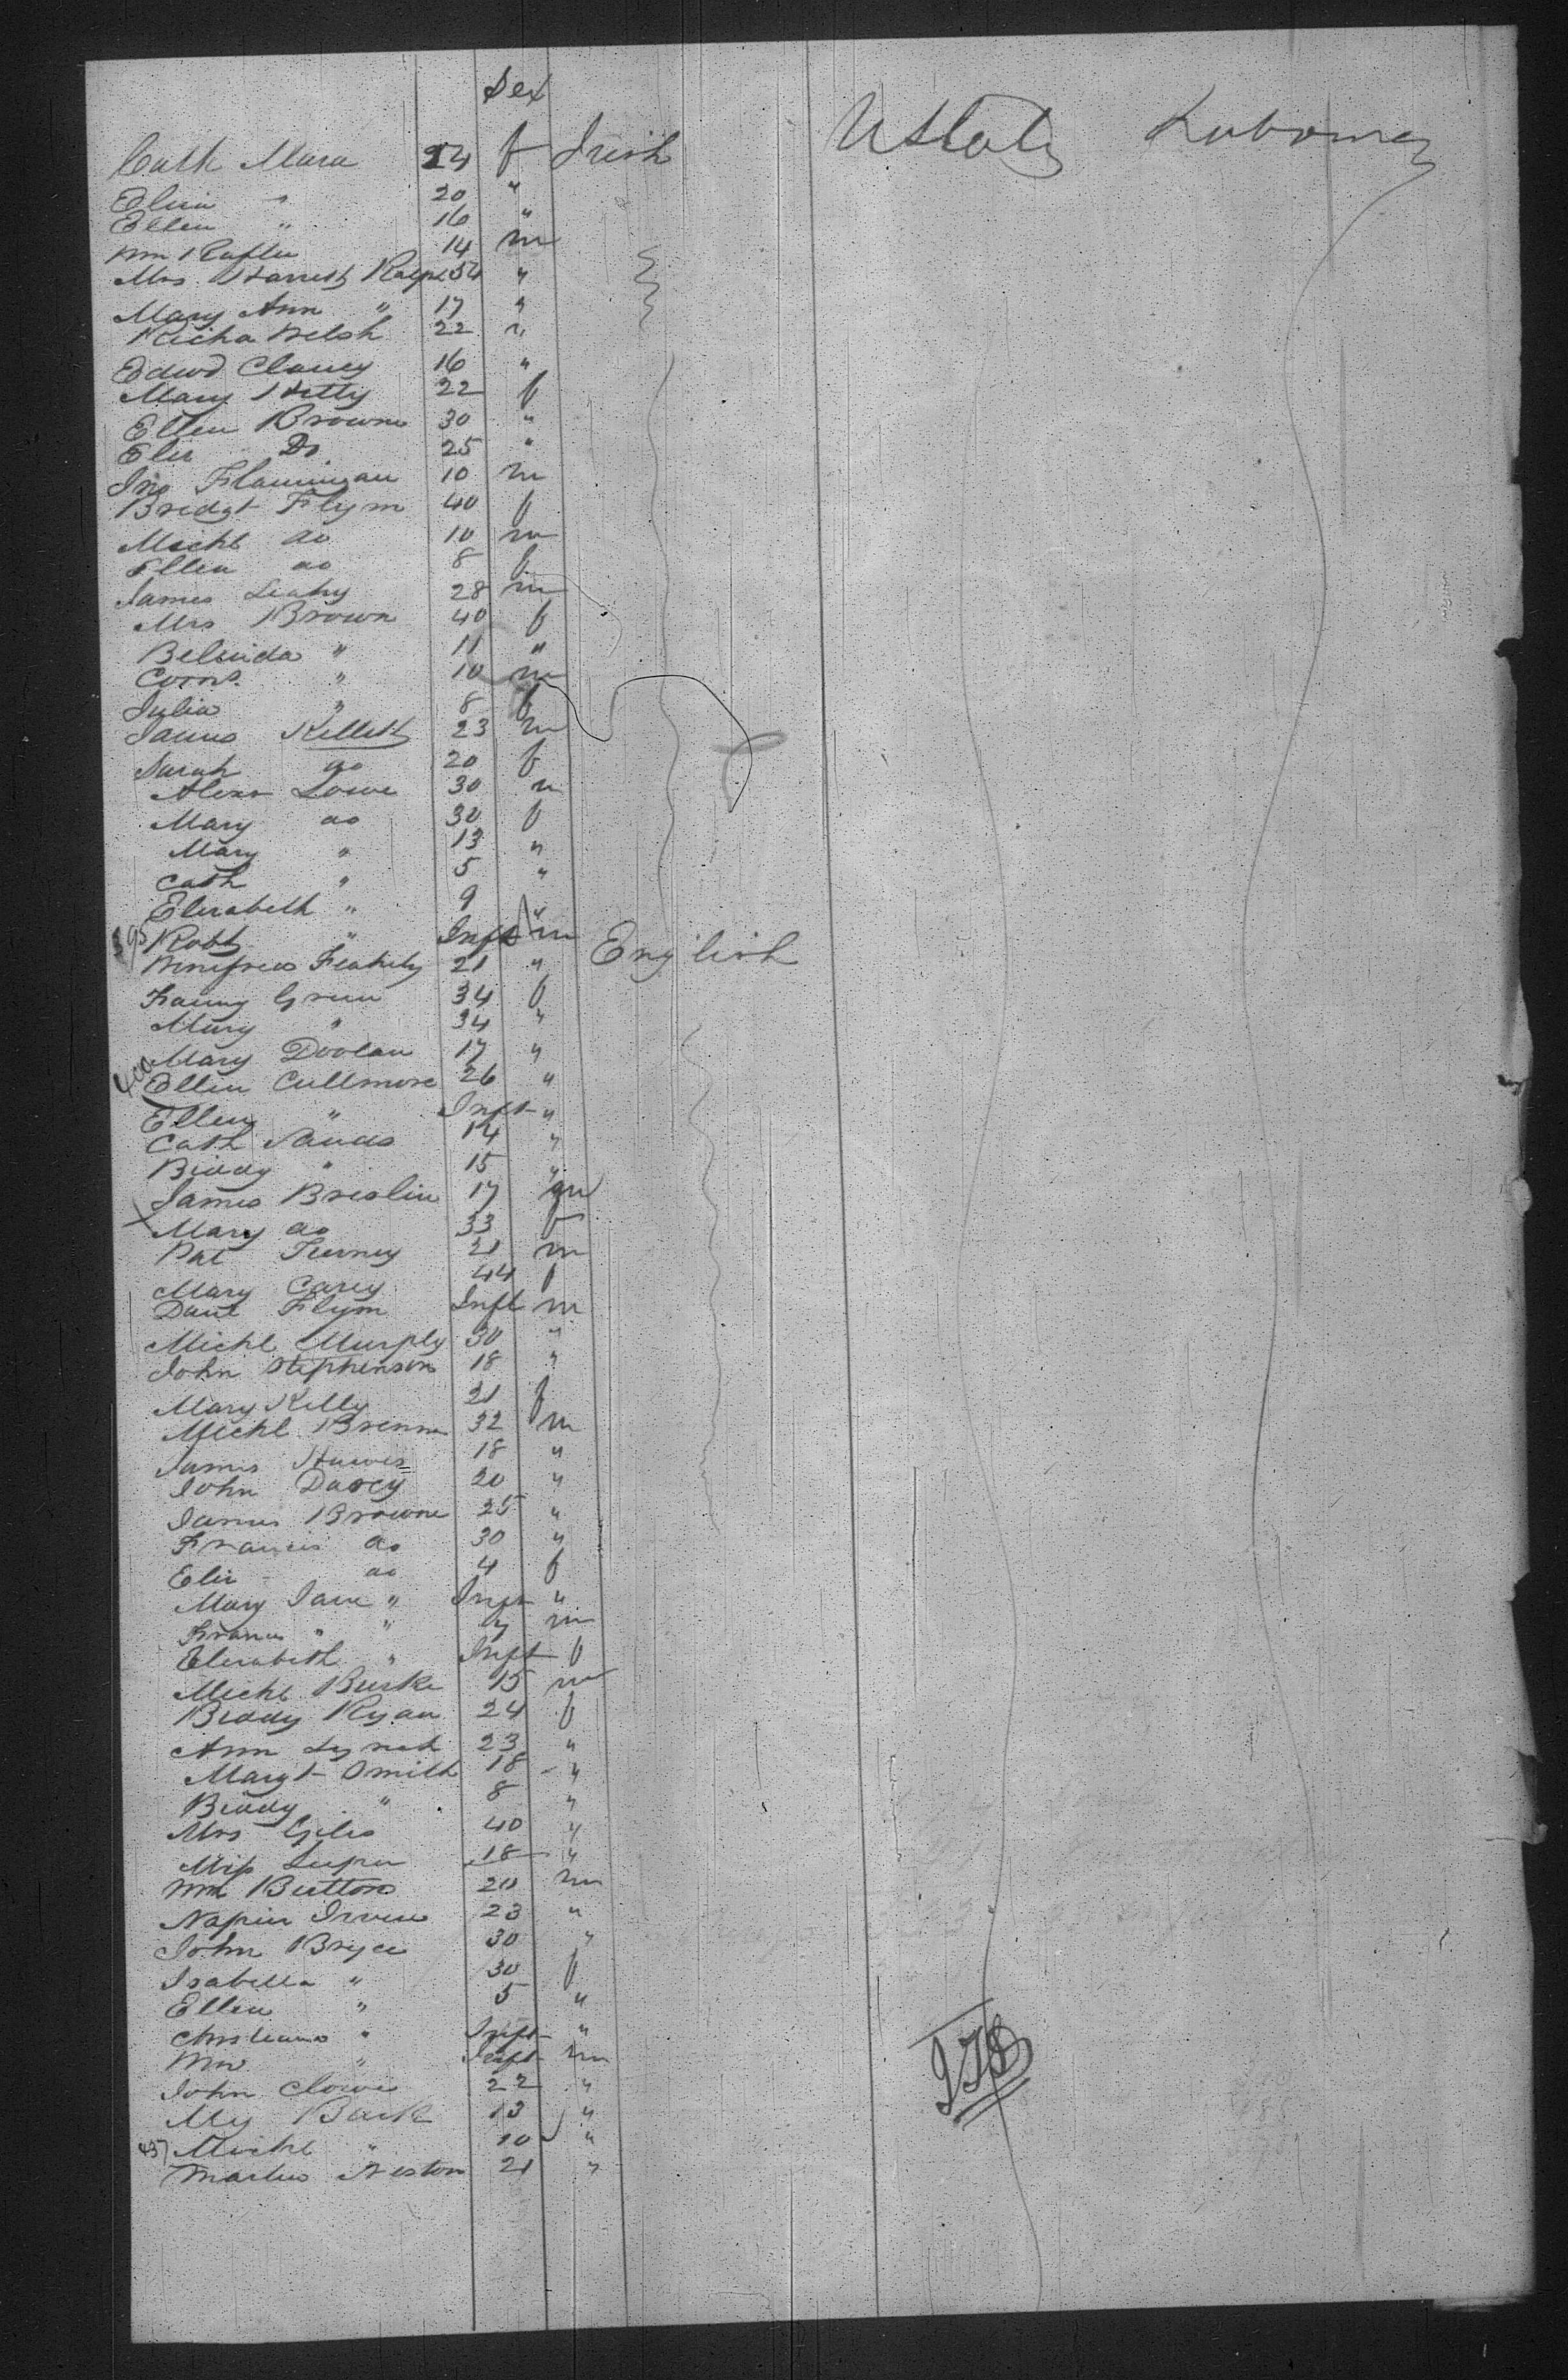 Sex
Cath Mara 24 f Irish U States Labourer
Eliza " 20 "
Ellen " 16 "
Wm 14 m
Mrs. Harriett 54 "
Mary Ann " 17 "
Richd Welsh 22 "
Edwd Clancy 16 "
Mary Hetty 22 f
Ellen Browne 30 "
Eliz Do 25 "
Jno Flannigan 10 m
Bridgt Flynn 40 f
Michl do 10 m
Ellen do 8 f
James Leahy 28 m
Mrs Brown 40 f
Belinda " 11 "
Corns. " 10 m
Julia " 8 f
James Kellett 23 m
Sarah do 20 f
Alexr Lowe 30 m
Mary do 30 f
Mary " 13 "
Cath " 5 "
Elizabeth " 9 "
395 Robt " Inft m English
Winifred 21 "
Fanny Green 34 f
Mary " 34 "
Mary Doolan 17 "
400 Ellen Cullmore 26 "
Ellen " Inft "
Cath Sands 14 "
Biddy " 15 "
James Breslin 17 m
X Mary do 33 f
Pat Tierney 21 m
Mary Carey 44 f
Danl Flynn Inft m
Michl Murphy 30 "
John Stephenson 18 "
Mary Kelly 21 f
Michl Brenn 32 m
James Hawes 18 "
John Darcy 20 "
James Browne 25 "
Francis do 30 "
Eliz do 4 f
Mary Jane " Inft "
Francis " " m
Elizabeth " Inft f
Michl Burke 15 m
Biddy Ryan 24 f
Ann Lynch 23 "
Margt Smith 18 "
Biddy " 8 "
Mrs Giles 40 "
Miss 18 "
Wm Button 20 m
Napier Irvine 23 "
John Bryce 30 "
Isabella " 30 f
Ellen " 5 "
Christiana " Inft "
Wm " Inft m
John Clowes 22 "
My Bark 13 "
437 Michl " 10 "
Martin Neston 21 "